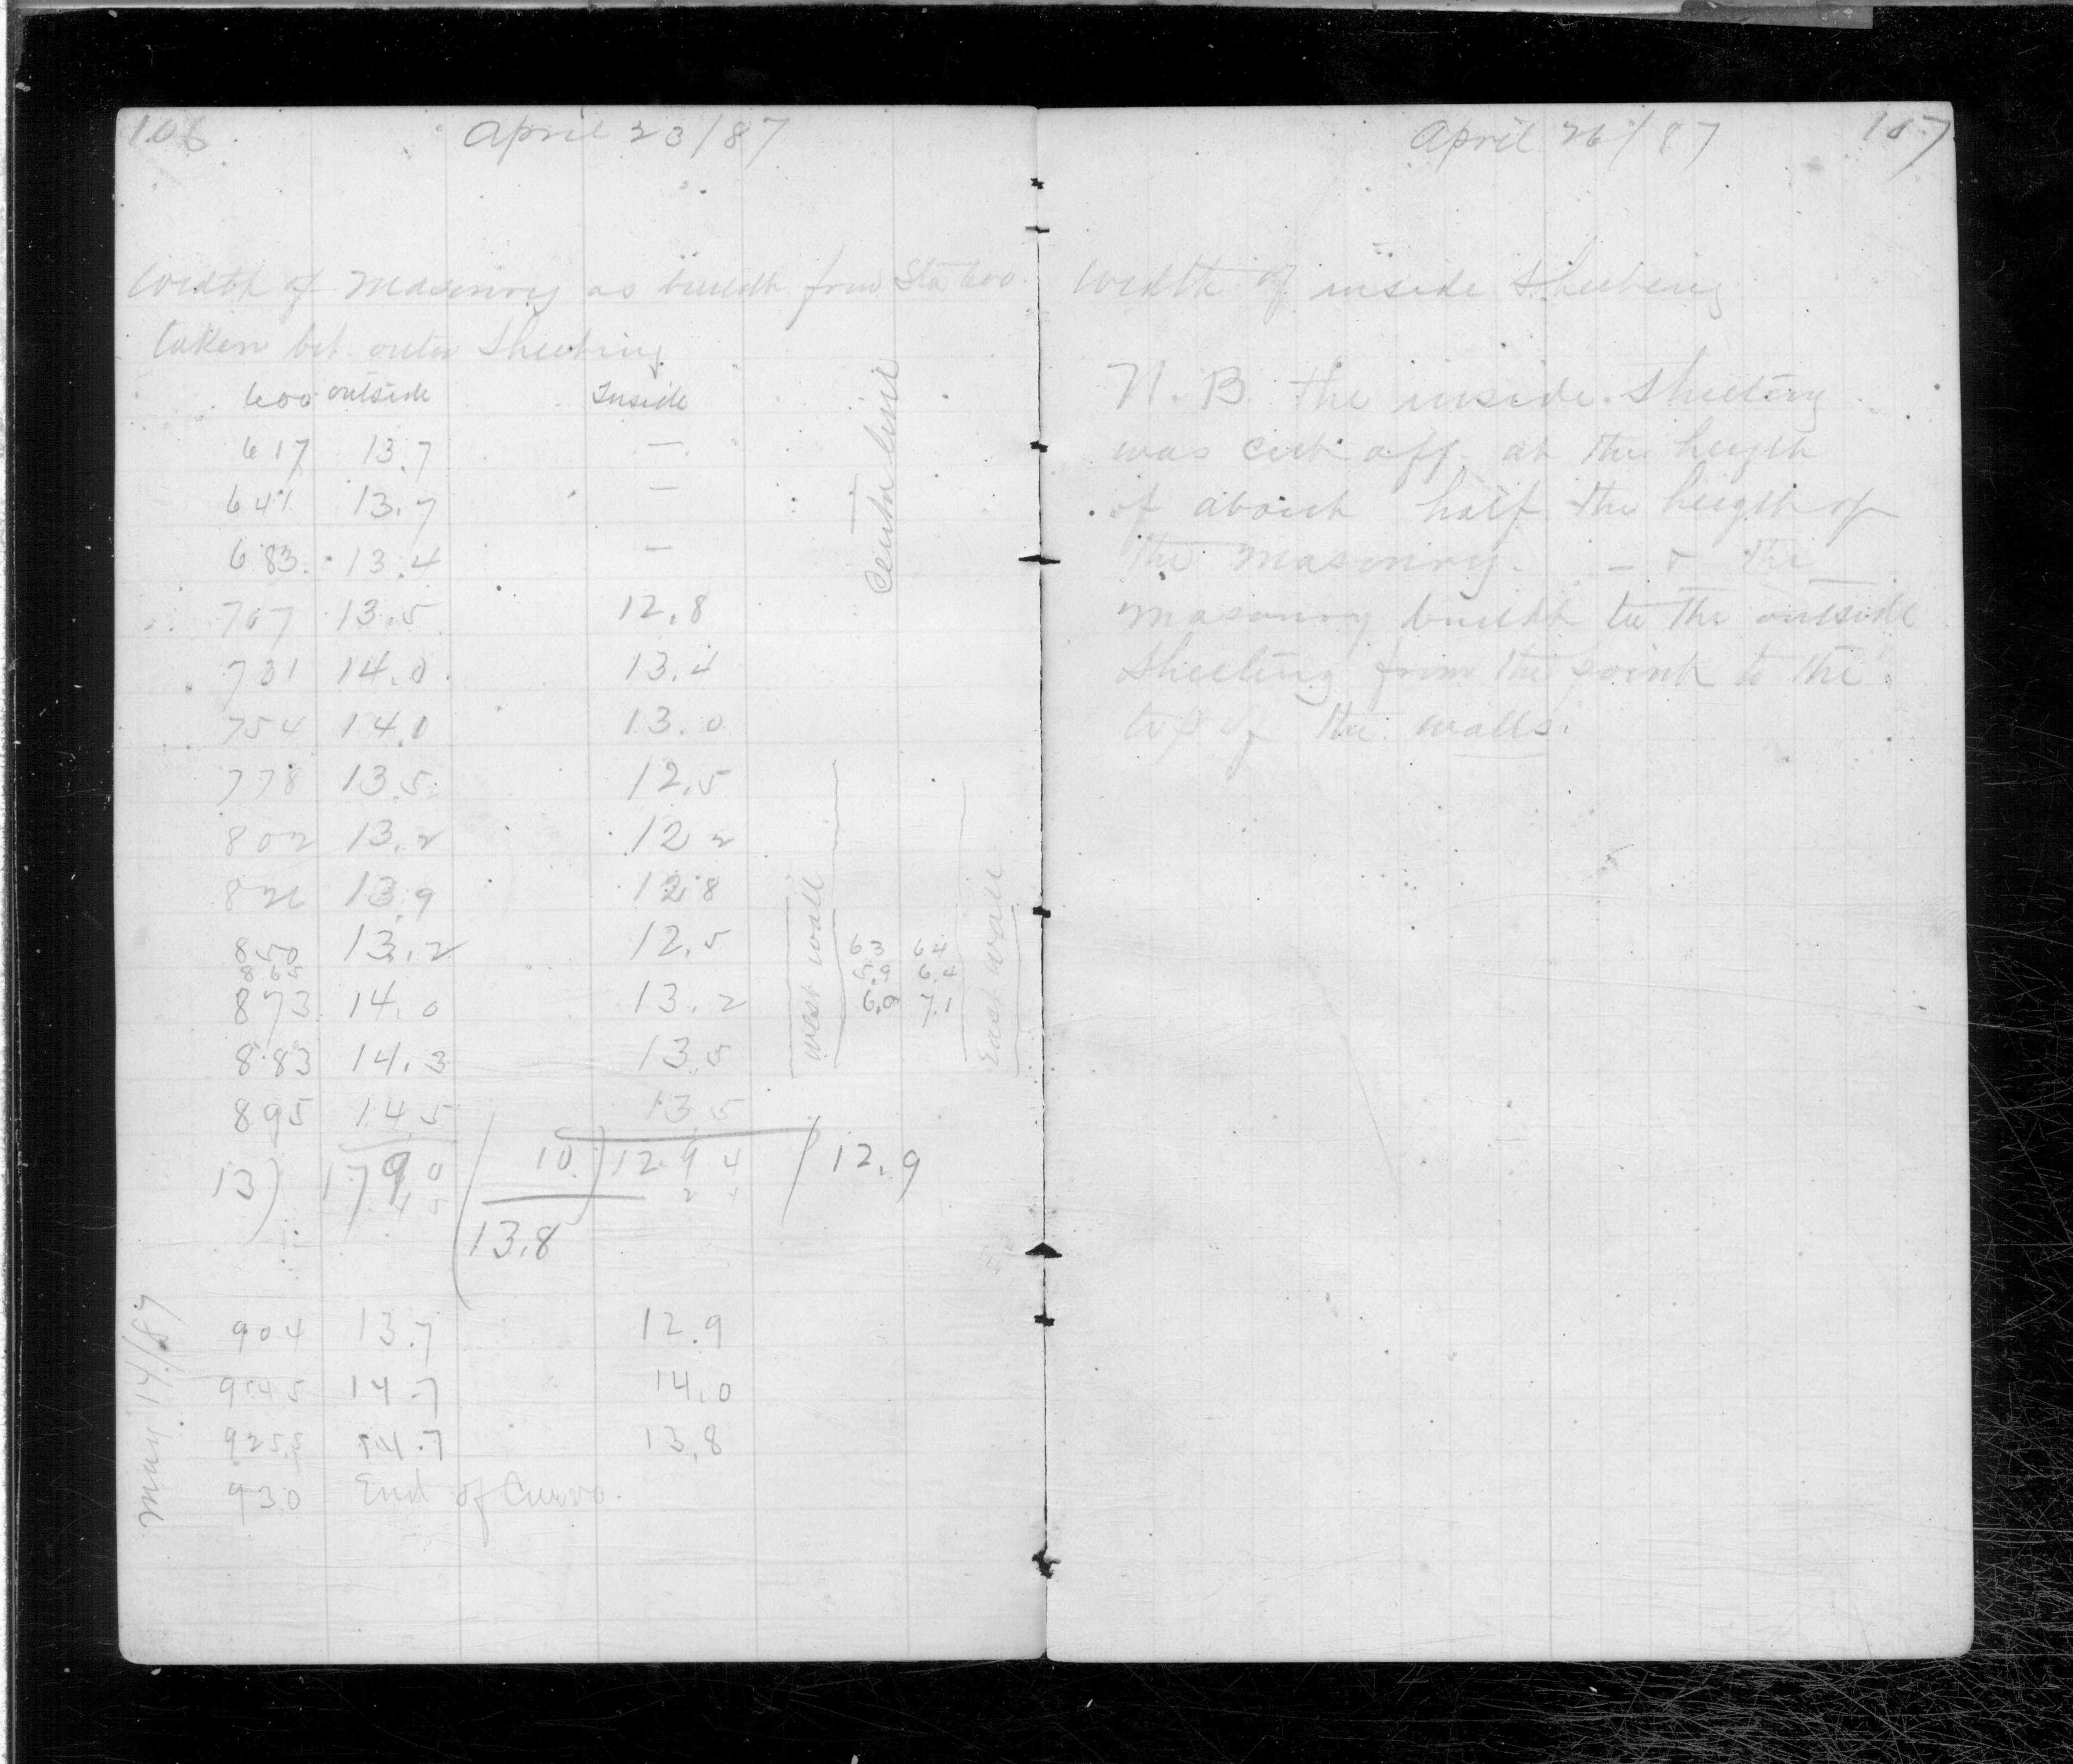 106 April 23/87
Width of Masonry as buildt from Sta 600
taken bet outer Sheeting
600 outside Inside
617 13.7 —
641 13.7 —
683 13.4 —
707 13.5 12.8
731 14.0 13.4
754 14.0 13.0
778 13.5 12.5
802 13.2 12.2
826 13.9 12.8
850 13.2 12.5
873 14.0 13.2
883 14.3 13.5
895 14.5 13.5
13) 179.0 ( 13.8
10) 129.4 / 12.9
Center line
West Wall
63 64
5.9 6.4
6.9 7.1
East Wall
May 14/87
904 13.7 12.9
914.5 14.7 14.0
925.5 14.7 13.8
930 End of Curve.
April 26/87 107
Width of inside Sheeting
N.B. the inside Sheeting
was cut off at the heigth
of about half the heigth of
the Masonry. — & the
masonry buildt to the outside
Sheeting from the point to the
top of the walls.